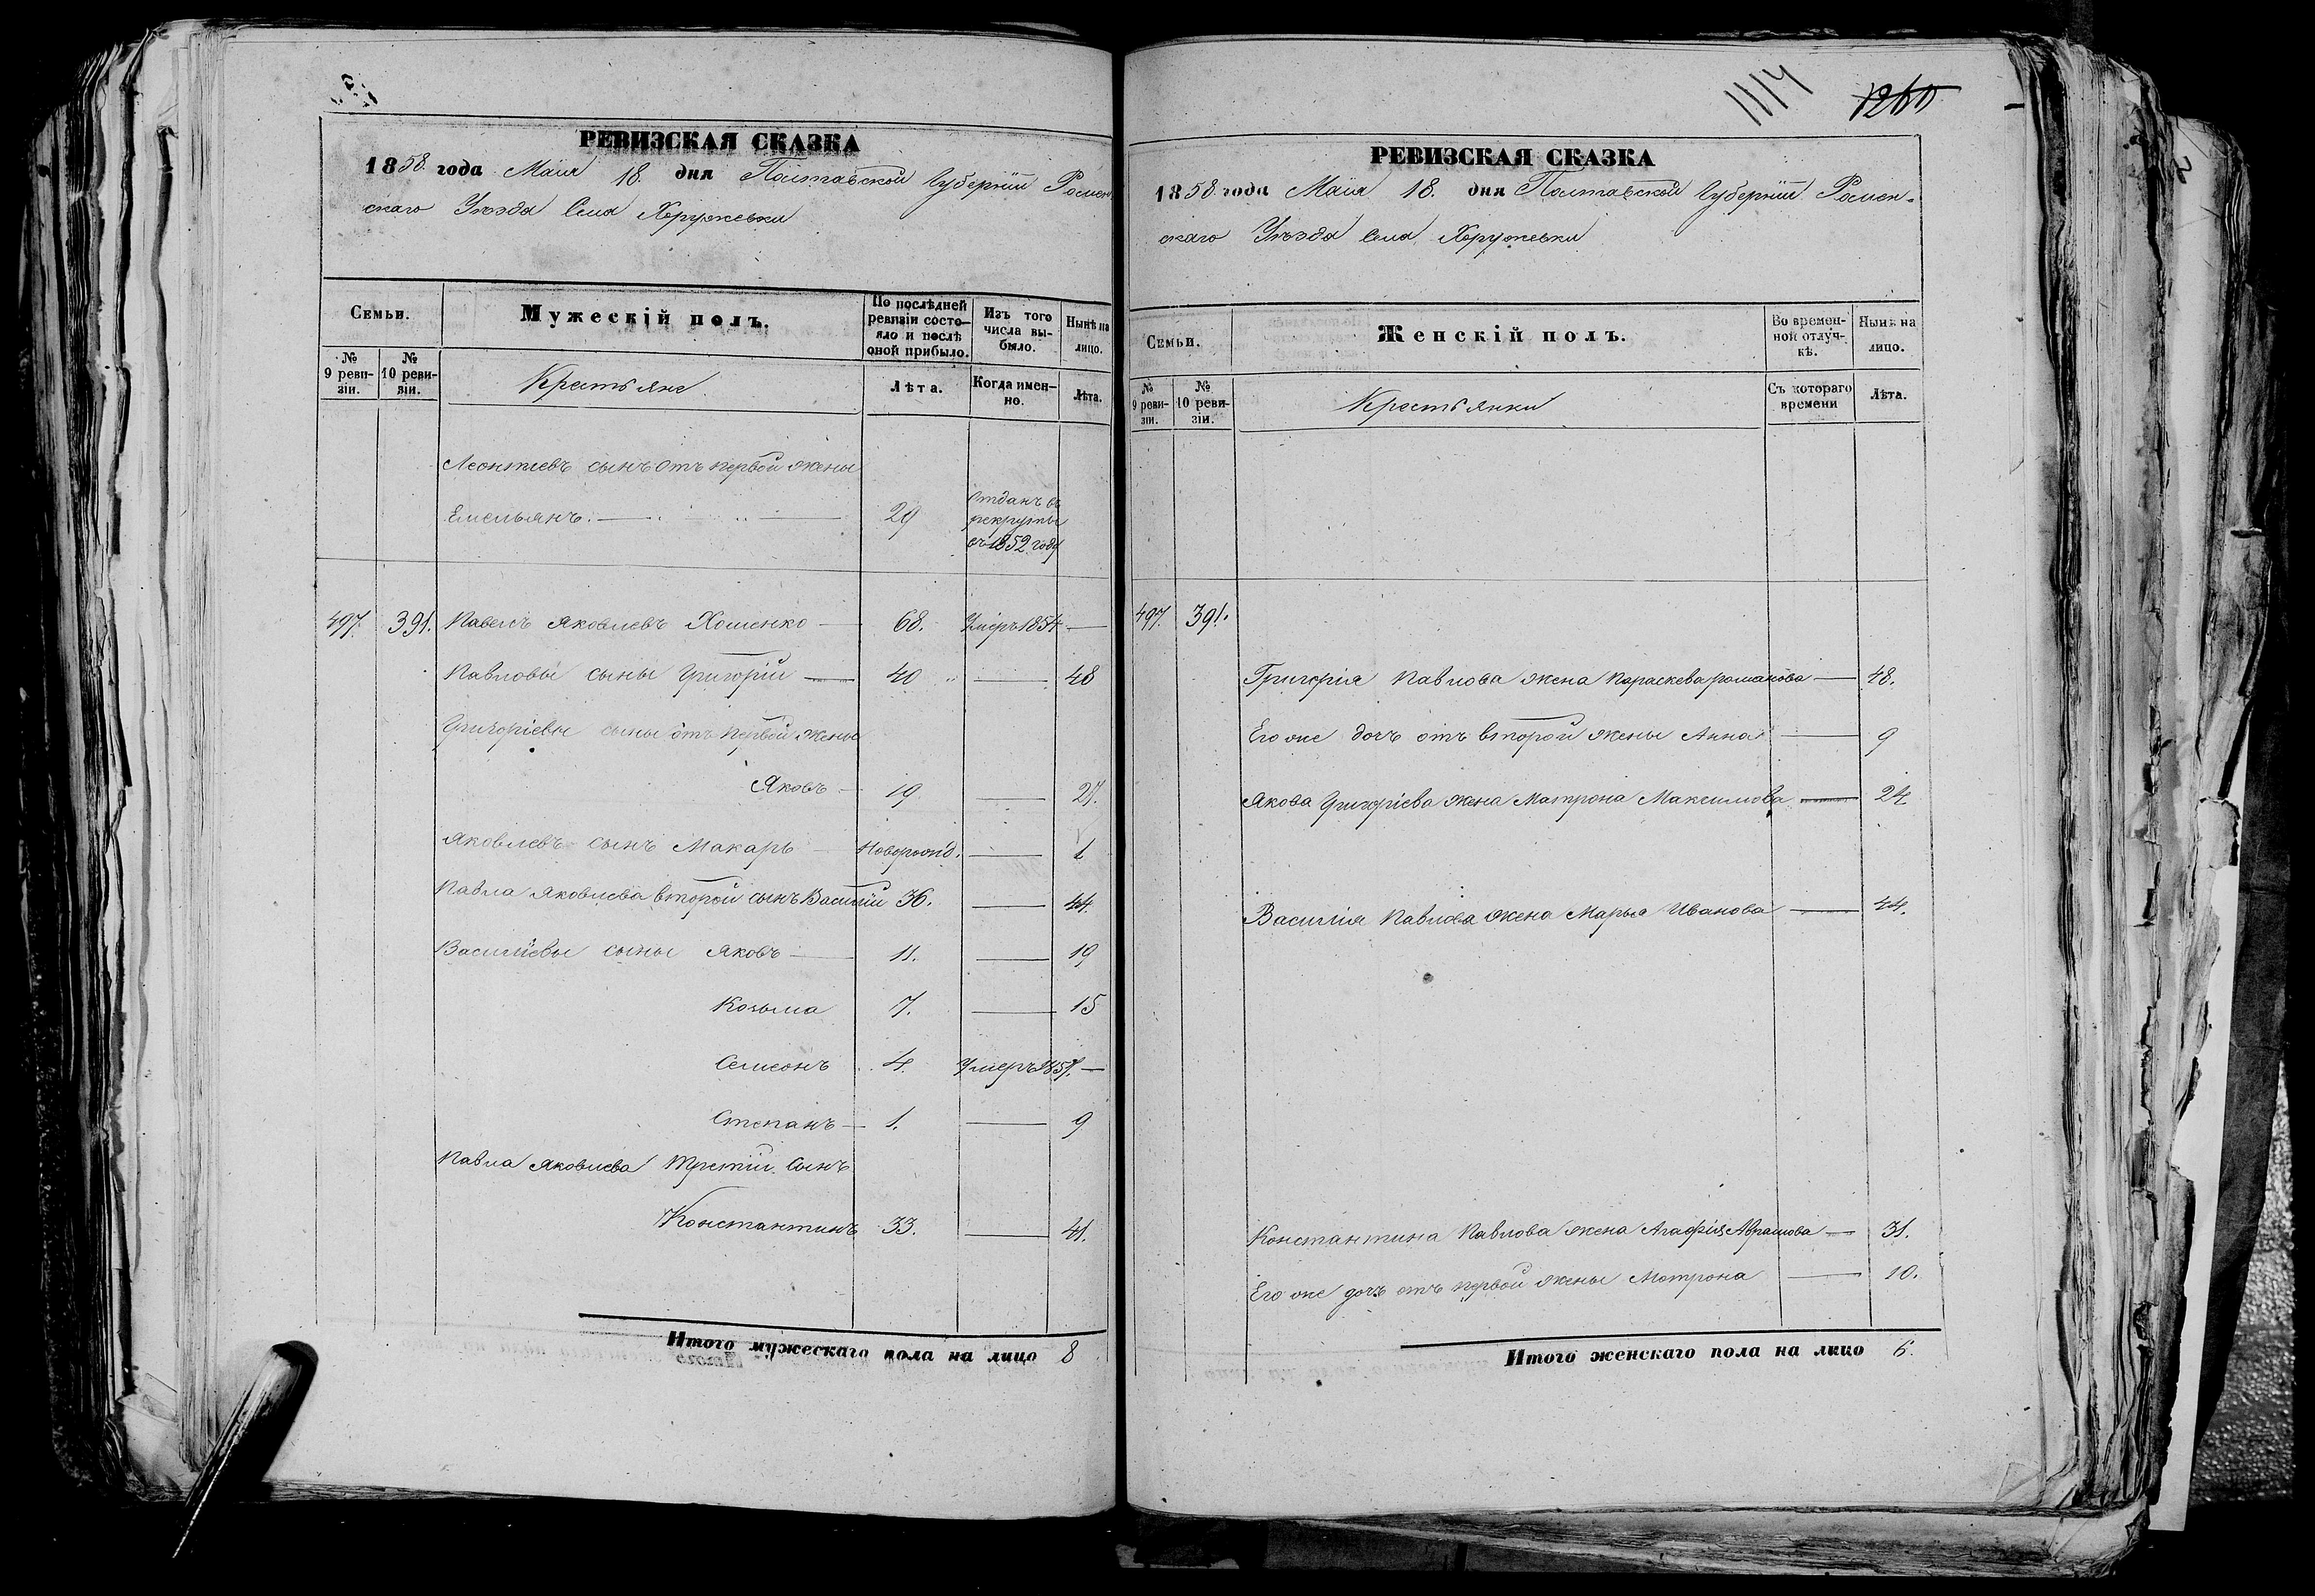 РЕВИЗСКАЯ СКАЗКА
1858. года Маія 18. дня Полтавской Губерніи Ромен
скаго Уѣзда Села Хоружевки
Семьи.
Мужескій полъ.
По послѣдней ревизіи состояло и послѣ оной прибыло.
Изъ того числа выбыло.
Нынѣ на лицо.
№ 9 ревизіи.
№ 10 ревизіи.
Крестьяне
Лѣта.
Когда именно.
Лѣта.
Леонтіевъ сынъ отъ первой жены
Емельянъ. 29 Отданъ въ
рекруты
въ 1852 году
497. 391. Павелъ Яковлевъ Хоменко 68. Умеръ 1854
Павловы сыны Григорій 40 48
Григоріевы сыны отъ первой жены
Яковъ 19 27.
Яковлевъ сынъ Макаръ Новорожд. 1
Павла Яковлева второй сынъ Василій 36. 44.
Василіевы сыны Яковъ 11. 19
Козьма 7. 15
Семенъ 4. Умеръ 1857.
Степанъ 1. 9
Павла Яковлева третій сынъ
Константинъ 33. 41.
Итого мужескаго пола на лицо 8
1114 1260
РЕВИЗСКАЯ СКАЗКА
1858. года Маія 18. дня Полтавской Губерніи Ромен-
скаго Уѣзда Села Хоружевки
Семьи.
Женскій полъ.
Во временной отлучкѣ.
Нынѣ на лицо.
№ 9 ревизіи.
№ 10 ревизіи.
Крестьянки
Съ котораго времени
Лѣта.
497. 391.
Григорія Павлова жена Параскева Романова 48.
Его же дочь отъ второй жены Анна 9
Якова Григоріева жена Матрона Максимова 24.
Василія Павлова жена Марья Иванова 44.
Константина Павлова жена Агафія Аврамова 31.
Его же дочь отъ первой жены Мотрона 10.
Итого женскаго пола на лицо 6.